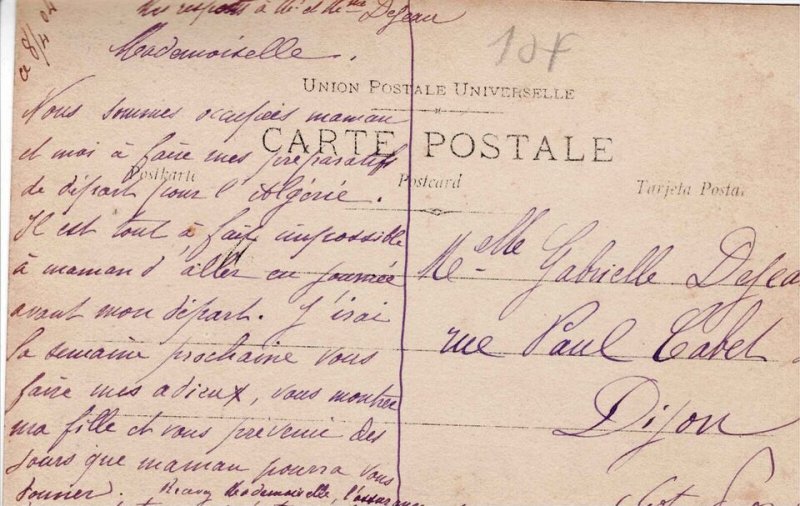 mes respects à Mr et Mme DeJeau
Mademoiselle.
Nous sommes occupées maman
et moi à faire mes préparatifs
de départ pour l'Algérie.
Il est tout à fait impossible
à maman d'aller en journée
avant mon départ. J'irai
la semaine prochaine vous
faire mes adieux, vous montrer
ma fille et vous prévenir des
jours que maman pourra vous
donner. Recevez Mademoiselle, l'assurance
UNION POSTALE UNIVERSELLE
CARTE POSTALE
Postkarte Postcard Tarjeta Postal
Melle Gabrielle DeJeau
rue Paul Cabet
Dijon
Côt